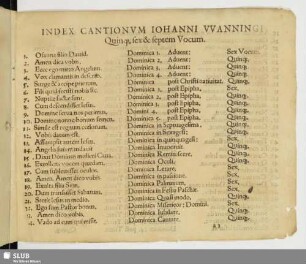 INDEX CANTIONVM IOHANNI VVANNINGI
Quinq, sex & septem Vocum.
1. Osanna filio David. Dominica 1. Aduent: Sex Vocum
2. Amen dico vobis, Dominica 2. Aduent: Quinq.
3. Ecce ego mitto Angelum. Dominica 3. Aduent: Quinq.
4. Vox clamantis in deserto. Dominica 4. Aduent: Quinq.
5. Surge & accipe puerum. Dominica post Christi nativitat. Quinq.
6. Fili quid fecisti nobis sic. Dominica 1. post Epipha. Sex.
7. Nuptiæ factæ sunt. Dominica 2. post Epipha. Quinq.
8. Cum descendisset Iesus. Dominica 3. post Epipha. Sex.
9. Domine salva nos perimus. Dominica 4. post Epipha. Quinq.
10. Domine nonne bonum semen. Dominica 5. post Epipha. Quinq.
11. Simile est regnum cœlorum. Dominica in septuagesima. Quinq.
12. Vobis datum est. Dominica in Sexagesi: Quinq.
13. Assumpsit autem Iesus. Dominica in quinquagesi: Sex.
14. Dominica Inuocauit. Quinq.
15. Dominica Reminiscere. Quinq.
16. Dominica Oculi. Quinq.
17. Dominica Lætare. Sex.
18. Amen, Amen dico vobis Dominica in passione. Sex.
19. Exulta filia Sion. Dominica Palmarum. Sex.
20. Dum transisset Sabatum. Dominica in Festo Paschæ. Sex.
21. Stetit Iesus in medio. Dominica Quasi modo. Quinq.
22. Ego sum Pastor bonus. Dominica Misericor: Domini. Sex.
23. Amen dico vobis. Dominica Iubilate. Quinq.
24. Vado ad eum qui misit me. Dominica Cantate. Quinq.
SLUB
Wir führen Wissen.